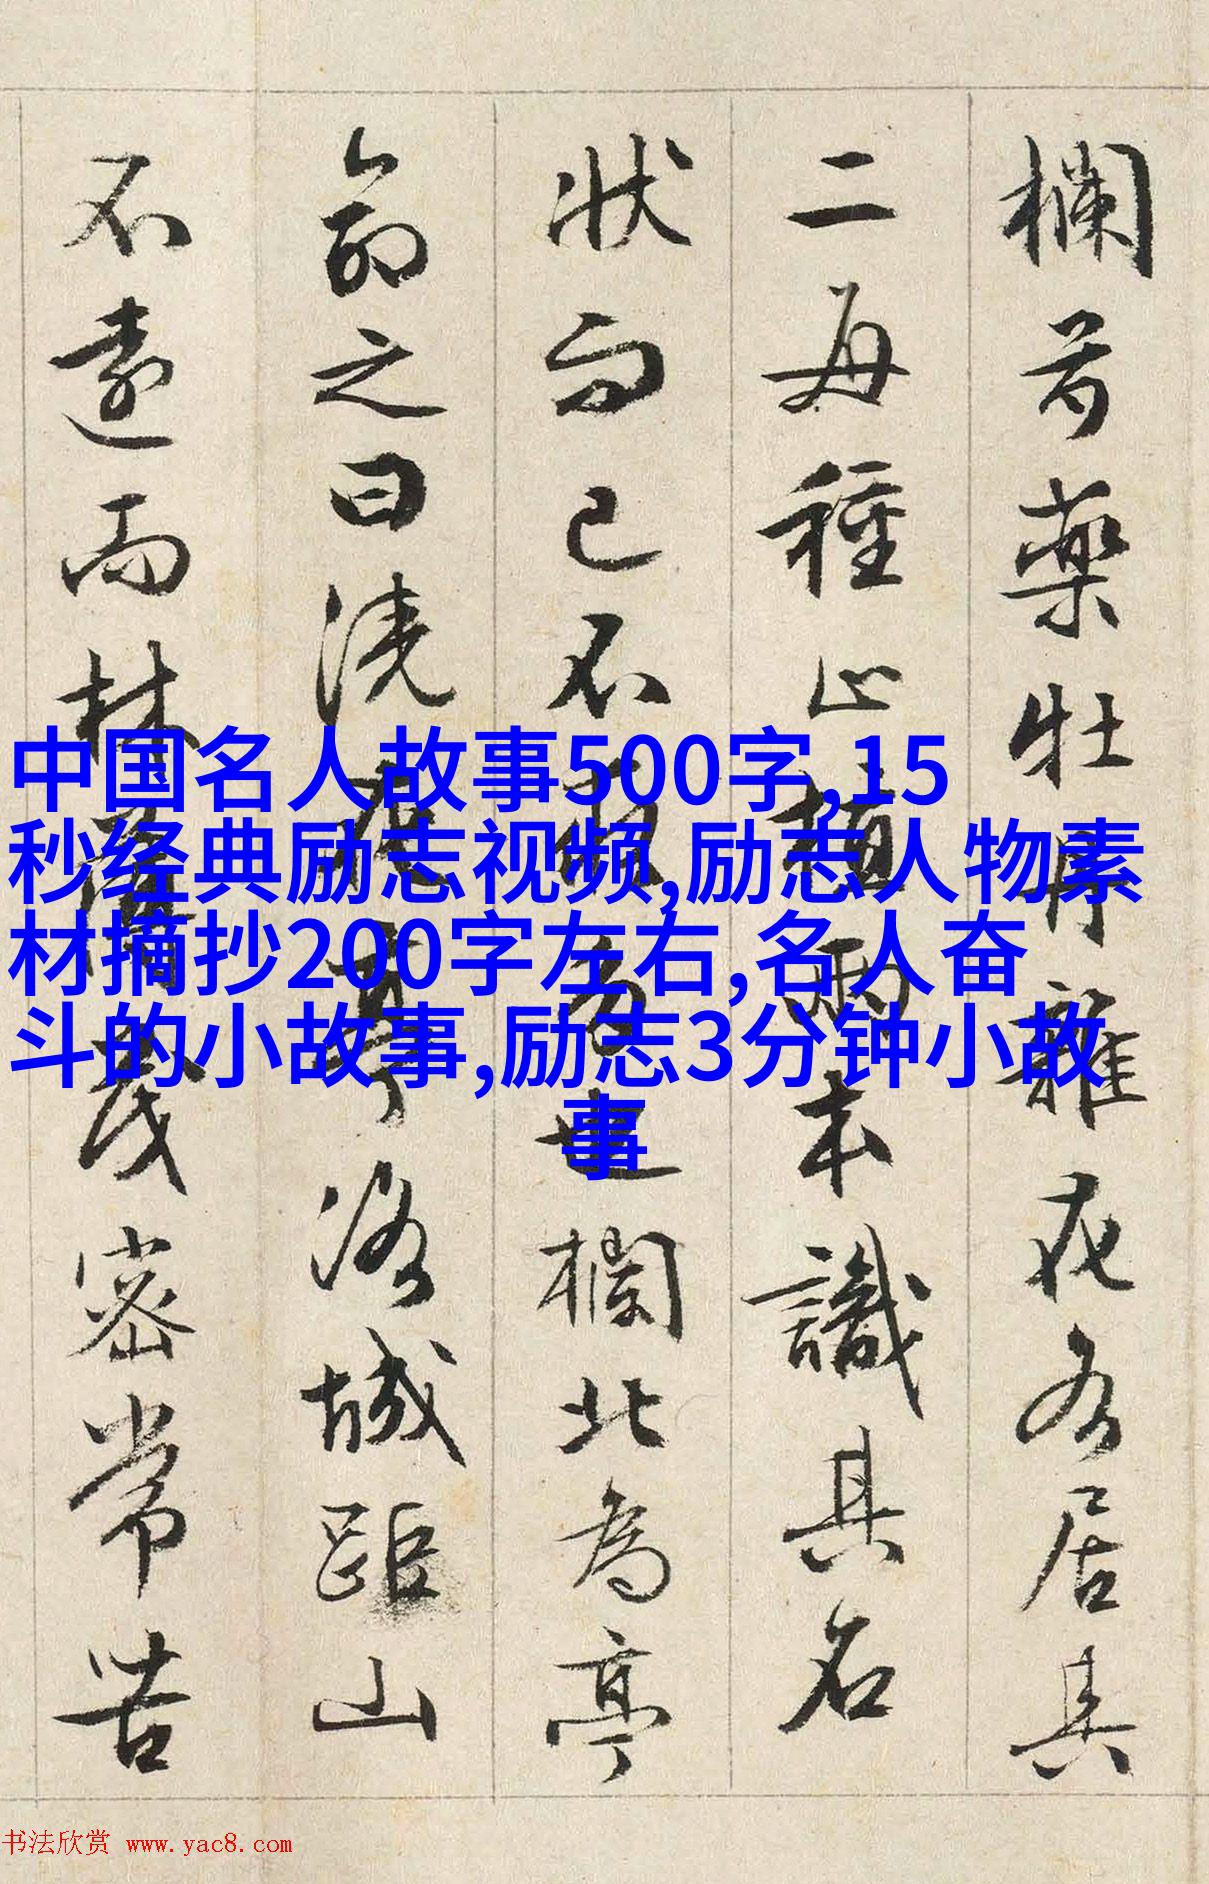 欄芍藥牡丹雜花各居其
二每種止植兩本識其名
狀而已不求多也欄北為亭
命之曰澆花亭洛城距山
不遠而林薄茂密常苦
中国名人故事500字,15
秒经典励志视频,励志人物素
材摘抄200字左右,名人奋
斗的小故事,励志3分钟小故
事
书法欣赏 www.yac8.com